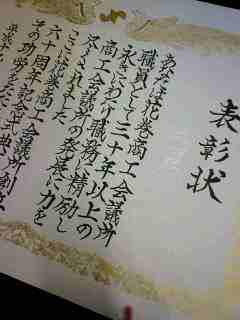 表彰状
あなたは花巻商工会議所
職員として三十年以上の
永きにわたり職務に精励し
商工会議所の発展に力を
尽くされました
ここに花巻商工会議所創立
六十周年記会式典に
その功労をたたえ
平成十